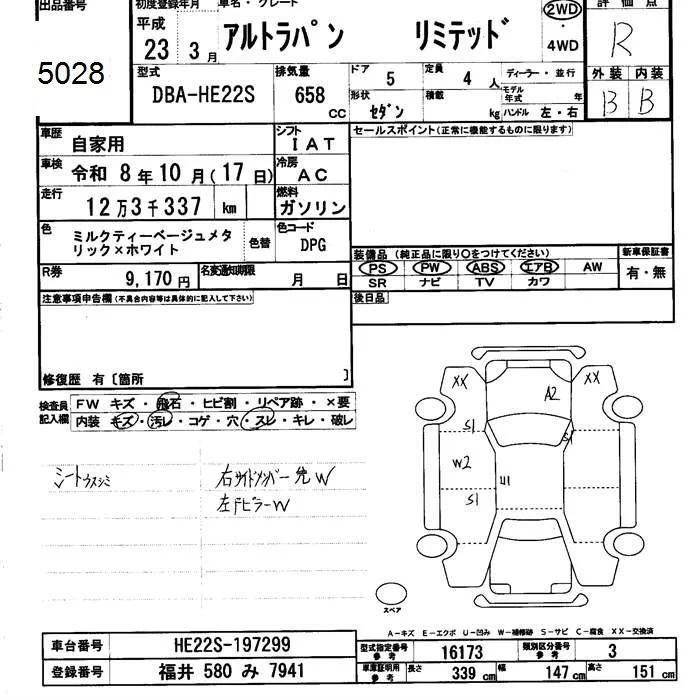 出品番号
5028
初度登録年月
平成
23 3月
車名・グレード
アルトラパン リミテッド
2WD
・
4WD
評価点
R
型式
DBA-HE22S
排気量
658
CC
ドア 5
定員 4 人
形状 セダン
積載 kg
ディーラー・並行
モデル年式 年
ハンドル 左・右
外装 内装
B B
車歴
自家用
シフト
IAT
車検
令和 8年 10月(17日)
冷房
AC
走行
12万3千337 km
燃料
ガソリン
色
ミルクティーベージュメタ
リック×ホワイト
色替
色コード
DPG
R券
9,170円
名変通知期限
月 日
セールスポイント(正常に機能するものに限ります)
装備品 (純正品に限り○をつけてください)
PS PW ABS エアB AW
SR ナビ TV カワ
新車保証書
有・無
後日品
注意事項申告欄(不具合内容等は具体的に記入して下さい)
修復歴 有〔箇所 〕
検査員
記入欄
FW キズ・飛石・ヒビ割・リペア跡・×要
内装 キズ・汚レ・コゲ・穴・スレ・キレ・破レ
シートウスシミ
右サイドメンバー先W
左Fピラ-W
XX
XX
A2
S1
S1
W2
U1
S1
スペア
A-キズ E-エクボ U-凹み W-補修跡 S-サビ C-腐食 XX-交換済
車台番号
HE22S-197299
登録番号
福井 580 み 7941
型式指定番号
参考
16173
類別区分番号
参考
3
車庫証明用
参考
長さ 339 cm
幅 147 cm
高さ 151 cm